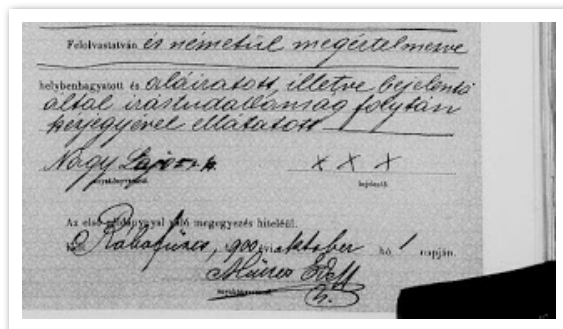 Felolvastatván és németül megértelmezve
helybenhagyatott és aláiratott, illetve bejelentő
által írástudatlanság folytán
kézjegyével ellátatott
Nagy Lajos x x x
anyakönyvvezető. bejelentő.
Az első példánynyal való megegyezés hiteléül.
Rábafüzes, 900 évi oktober hó 1 napján.
anyakönyvvezető.